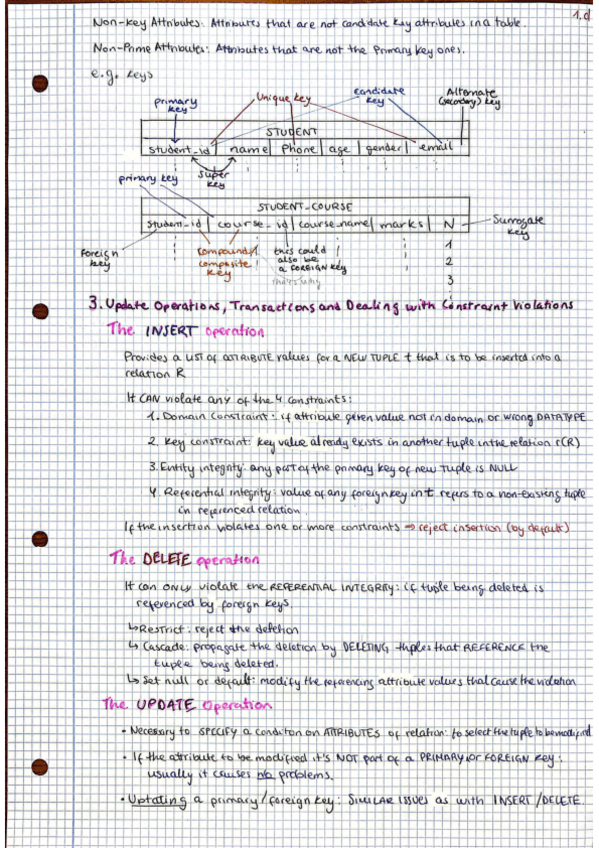 1.d
Non-key Attributes: Attributes that are not candidate key attributes in a table.
Non-Prime Attributes: Attributes that are not the Primary key ones.
e.g. keys
primary key
Unique key
candidate key
Alternate (secondary) key
STUDENT
student_id | name | Phone | age | gender | email
super key
primary key
STUDENT_COURSE
student_id | course_id | course_name | marks | N
Surrogate key
Foreign key
compound/ composite key
this could also be a FOREIGN KEY
that's why
1
2
3
3. Update Operations, Transactions and Dealing with Constraint Violations
The INSERT operation
Provides a LIST of ATTRIBUTE values for a NEW TUPLE t that is to be inserted into a
relation R
It CAN violate any of the 4 constraints:
1. Domain Constraint: if attribute given value not in domain or wrong DATATYPE
2. Key constraint: key value already exists in another tuple in the relation r(R)
3. Entity integrity: any part of the primary key of new tuple is NULL
4. Referential integrity: value of any foreign key in t refers to a non-existing tuple
in referenced relation.
If the insertion violates one or more constraints ⇒ reject insertion (by default)
The DELETE operation
It can ONLY violate the REFERENTIAL INTEGRITY: if tuple being deleted is
referenced by foreign keys
↳ Restrict: reject the deletion
↳ Cascade: propagate the deletion by DELETING tuples that REFERENCE the
tuple being deleted.
↳ Set null or default: modify the referencing attribute values that cause the violation
The UPDATE Operation
• Necessary to SPECIFY a condition on ATTRIBUTES of relation: to select the tuple to be modified
• If the attribute to be modified it's NOT part of a PRIMARY/or FOREIGN key:
usually it causes no problems.
• Uptating a primary/foreign key: SIMILAR ISSUES as with INSERT/DELETE.